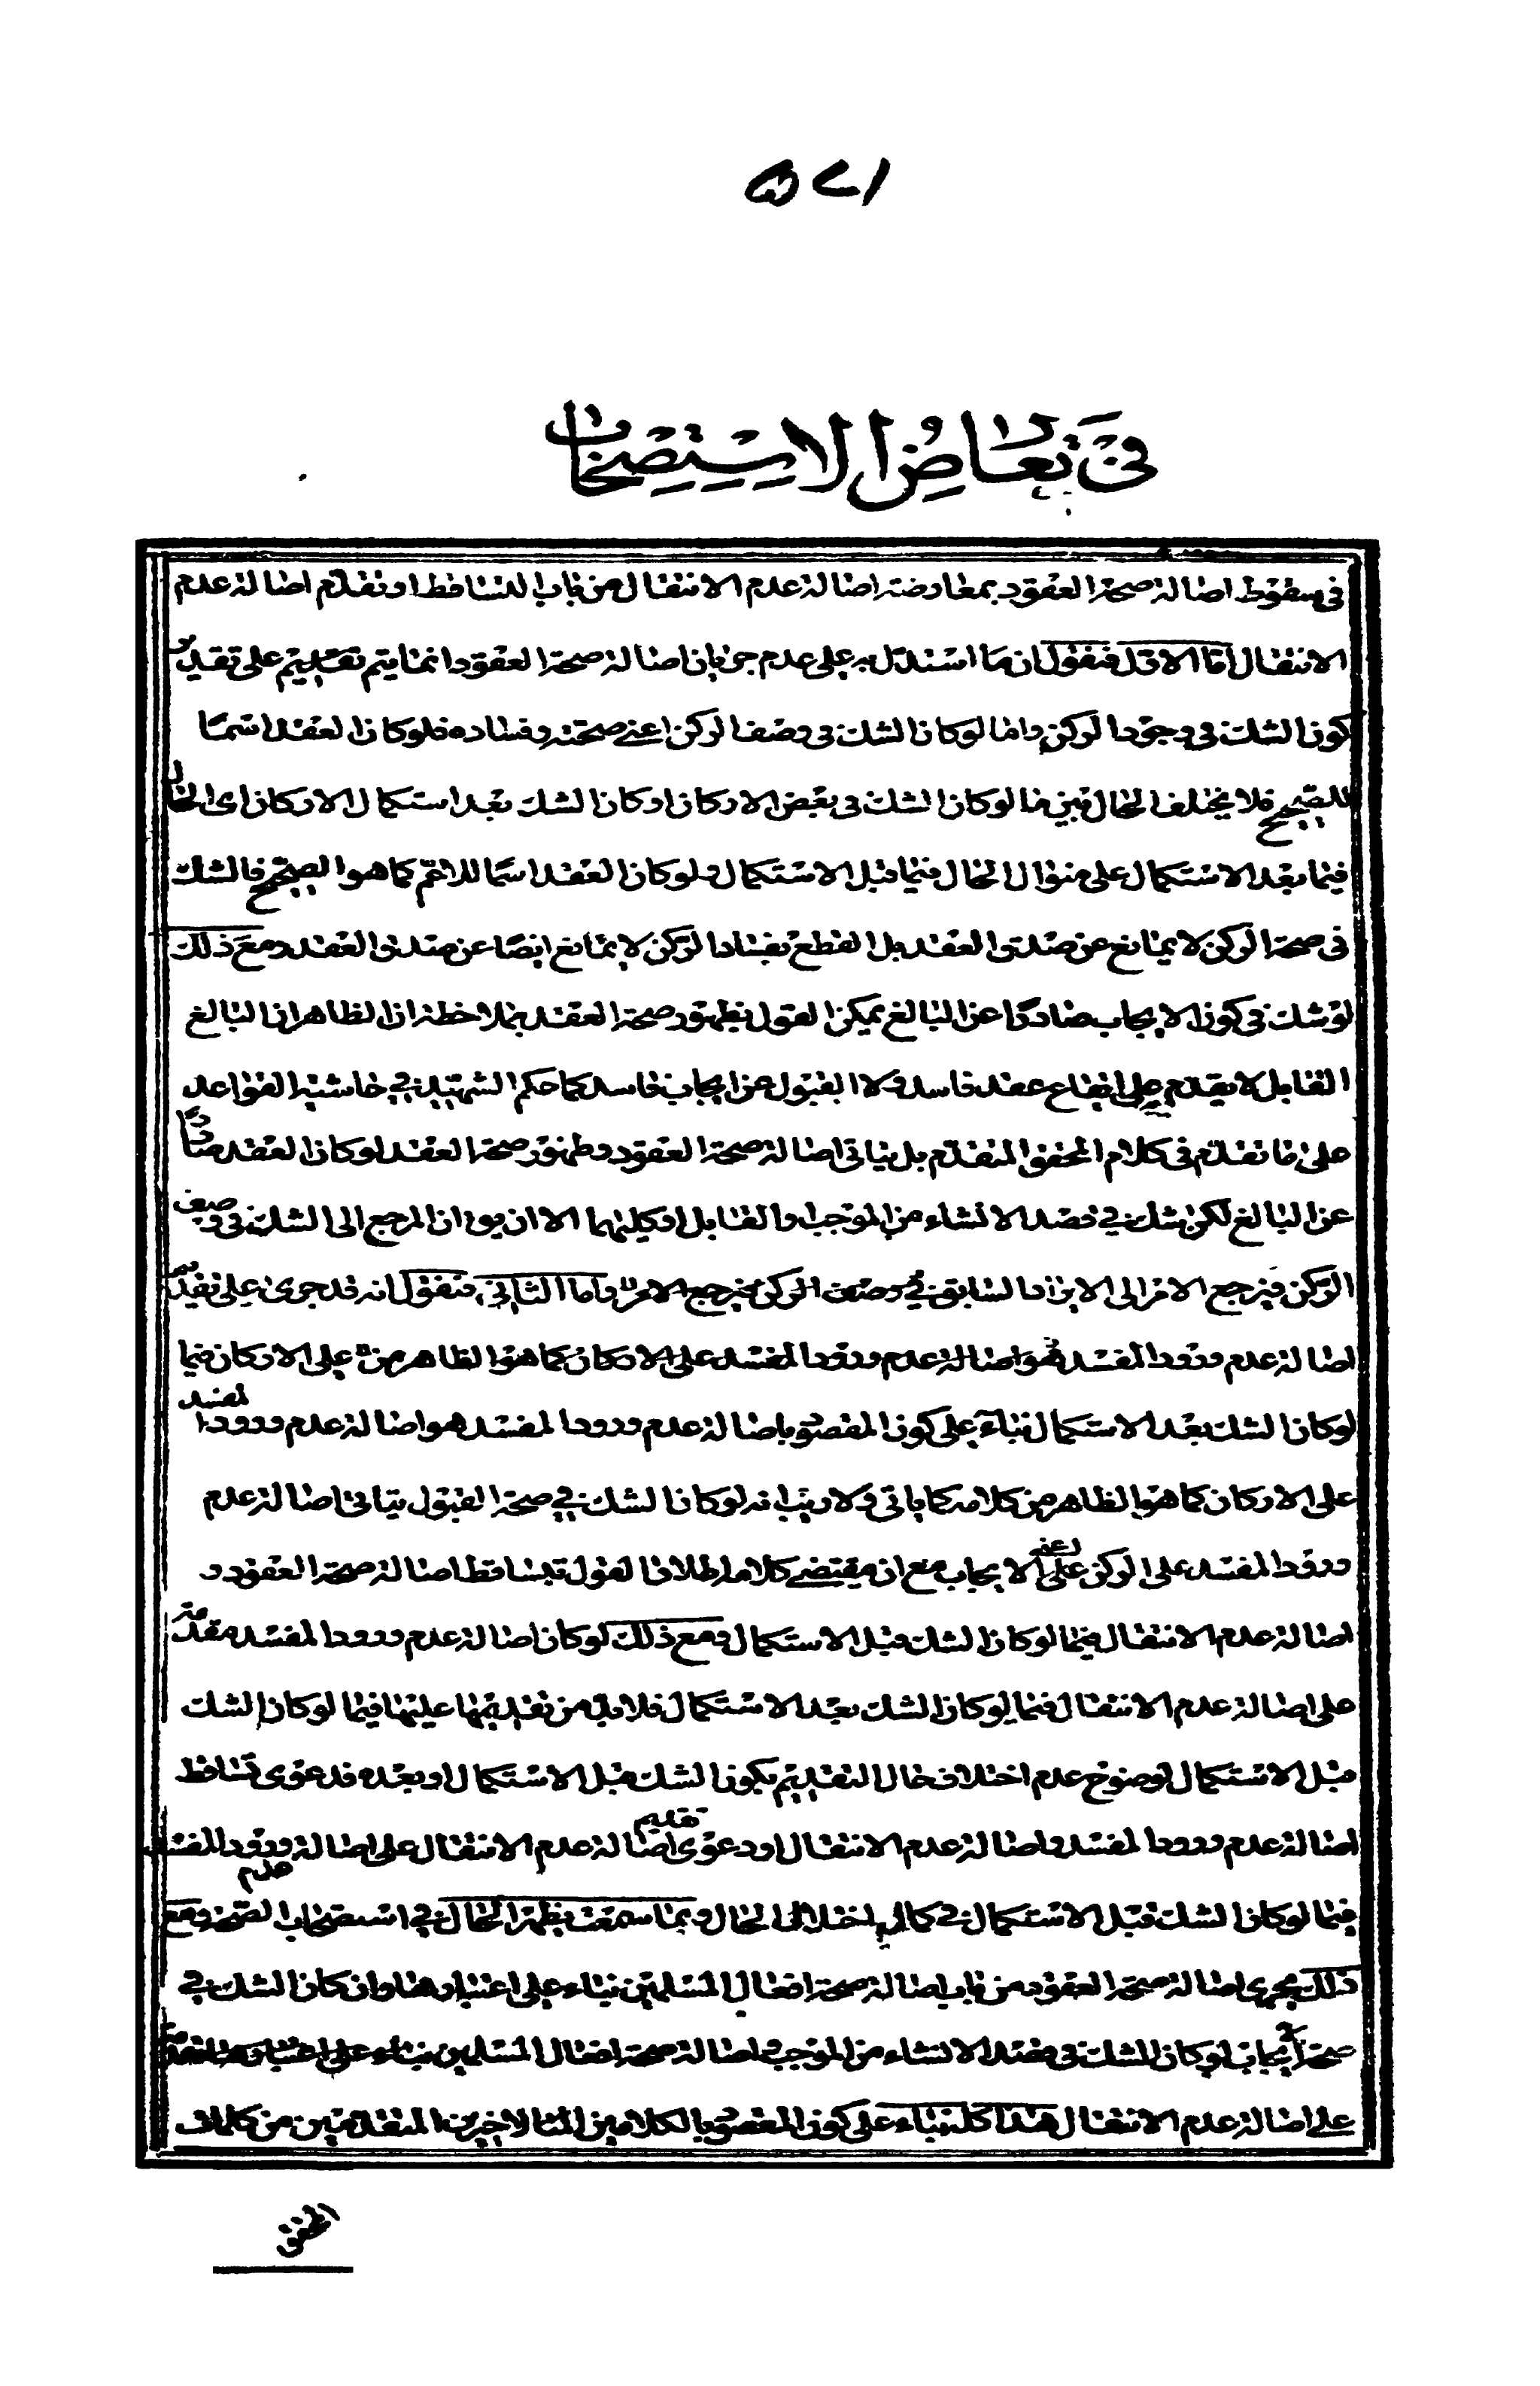 ٥٧١
في تعارض الاستصحاب
في سقوط اصالة صحة العقود بمعارضة اصالة عدم الانتقال من باب التساقط او تقدّم اصالة عدم
الانتقال امّا الاوّل فنقول ان ما استدلّ به على عدم جريان اصالة صحة العقود انما يتم تقديم على تقدير
كون الشك في وجود الركن واما لو كان الشك في وصف الركن اعني صحته وفساده فلو كان العقد اسمًا
للصّحيح فلا يختلف الحال بين ما لو كان الشك في بعض الاركان او كان الشك بعد استكمال الاركان اى الحال
فيما بعد الاستكمال على منوال الحال فيما قبل الاستكمال ولو كان العقد اسمًا للاعمّ كما هو الصحيح فالشك
في صحة الركن لا يمانع عن صدق العقد بل القطع بفساد الركن لا يمانع ايضًا عن صدق العقد ومع ذلك
لو شك في كون الايجاب صادرًا عن البالغ يمكن القول بظهور صحة العقد بملاحظة ان الظاهر ان البالغ
القابل لا يقدم على ايقاع عقد فاسد ولا القبول عن ايجاب فاسد كما حكم الشهيد في حاشية القواعد
على ما تقدّم في كلام المحقق المتقدّم بل يتاتى اصالة صحة العقود وظهور صحة العقد لو كان العقد صادرًا
عن البالغ لكن شك في قصد الانشاء من الموجب او القابل او كليهما الا ان يق ان المرجع الى الشك في وصف
الركن فيرجع الامر الى الايراد السابق في وصف الركن فيرجع الامر واما الثاني فنقول انه قد جرى على تقديم
اصالة عدم ورود المفسد هو اصالة عدم ورود المفسد على الاركان كما هو الظاهر من على الاركان فيما
لو كان الشك بعد الاستكمال بناء على كون المقصود باصالة عدم ورود المفسد هو اصالة عدم ورود المفسد
على الاركان كما هو الظاهر من كلامه كما ياتي ولا ريب انه لو كان الشك في صحة القبول يتاتى اصالة عدم
ورود المفسد على الركن اعني على الايجاب مع ان مقتضى كلامه اطلاق القول بتساقط اصالة صحة العقود و
اصالة عدم الانتقال فيما لو كان الشك قبل الاستكمال ومع ذلك لو كان اصالة عدم ورود المفسد مقدمة
على اصالة عدم الانتقال فيما لو كان الشك بعد الاستكمال فلا بدّ من تقديمها عليها فيما لو كان الشك
قبل الاستكمال لوضوح عدم اختلاف حال التقديم بكون الشك قبل الاستكمال او بعده فدعوى تساقط
اصالة عدم ورود المفسد واصالة عدم الانتقال او دعوى تقديم اصالة عدم الانتقال على اصالة عدم ورود المفسد
فيما لو كان الشك قبل الاستكمال في كمال اختلال الحال وبما سمعت يظهر الحال في استصحاب الصحة ومع
ذلك يجرى اصالة صحة العقود من باب اصالة صحة افعال المسلمين بناء على اعتبارها وان كان الشك في
صحة الايجاب لو كان الشك في قصد الانشاء من الموجب اصالة صحة افعال المسلمين بناء على اعتبارها
على اصالة عدم الانتقال هذا كله بناء على كون المقصود بالكلامين المثالا خيرين المتقدمين من كلمات
المحقق